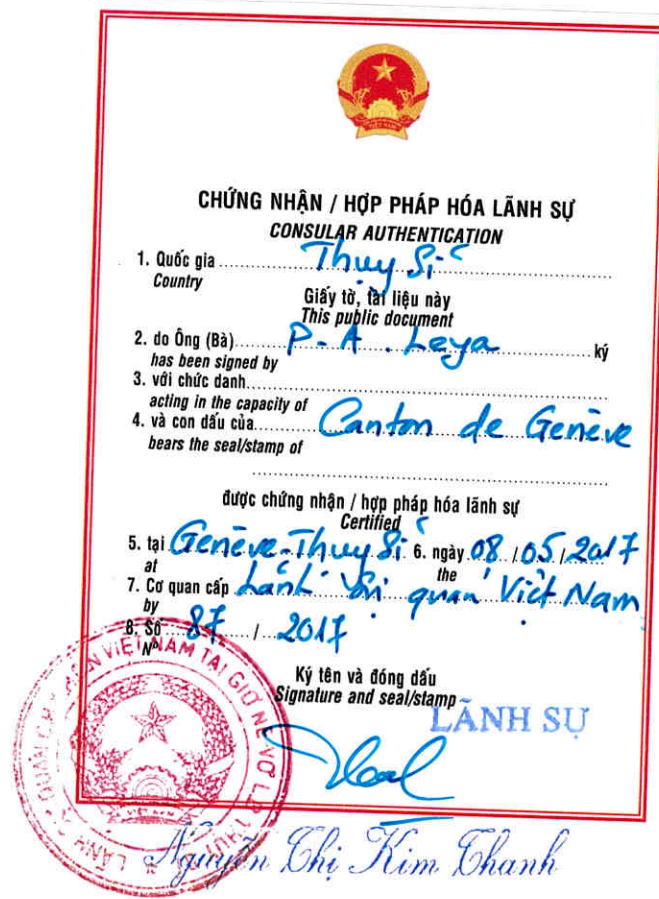 CHỨNG NHẬN / HỢP PHÁP HÓA LÃNH SỰ
CONSULAR AUTHENTICATION
1. Quốc gia Thụy Sĩ
Country
Giấy tờ, tài liệu này
This public document
2. do Ông (Bà) P-A. Leya ký
has been signed by
3. với chức danh
acting in the capacity of
4. và con dấu của Canton de Genève
bears the seal/stamp of
được chứng nhận / hợp pháp hóa lãnh sự
Certified
5. tại Genève-Thụy Sĩ 6. ngày 08/05/2017
at the
7. Cơ quan cấp Lãnh sự quán Việt Nam
by
8. Số 87 / 2017
N°
Ký tên và đóng dấu
Signature and seal/stamp
LÃNH SỰ
Nguyễn Thị Kim Thanh